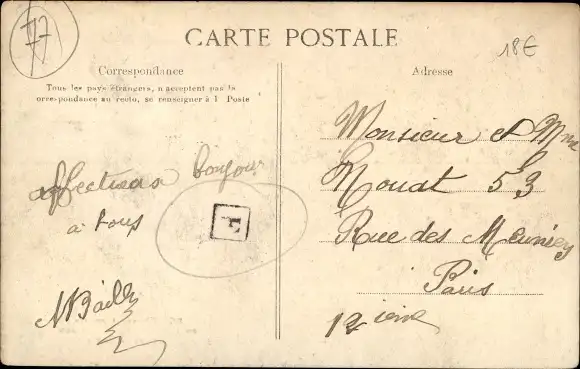 77
CARTE POSTALE
18€
Correspondance
Tous les pays étrangers, n acceptent pas la
orrespondance au recto, se renseigner à l Poste
Adresse
affectueux bonjour
à tous
E
Monsieur et Mme
53
Rue des Meuniers
Paris
12 ième